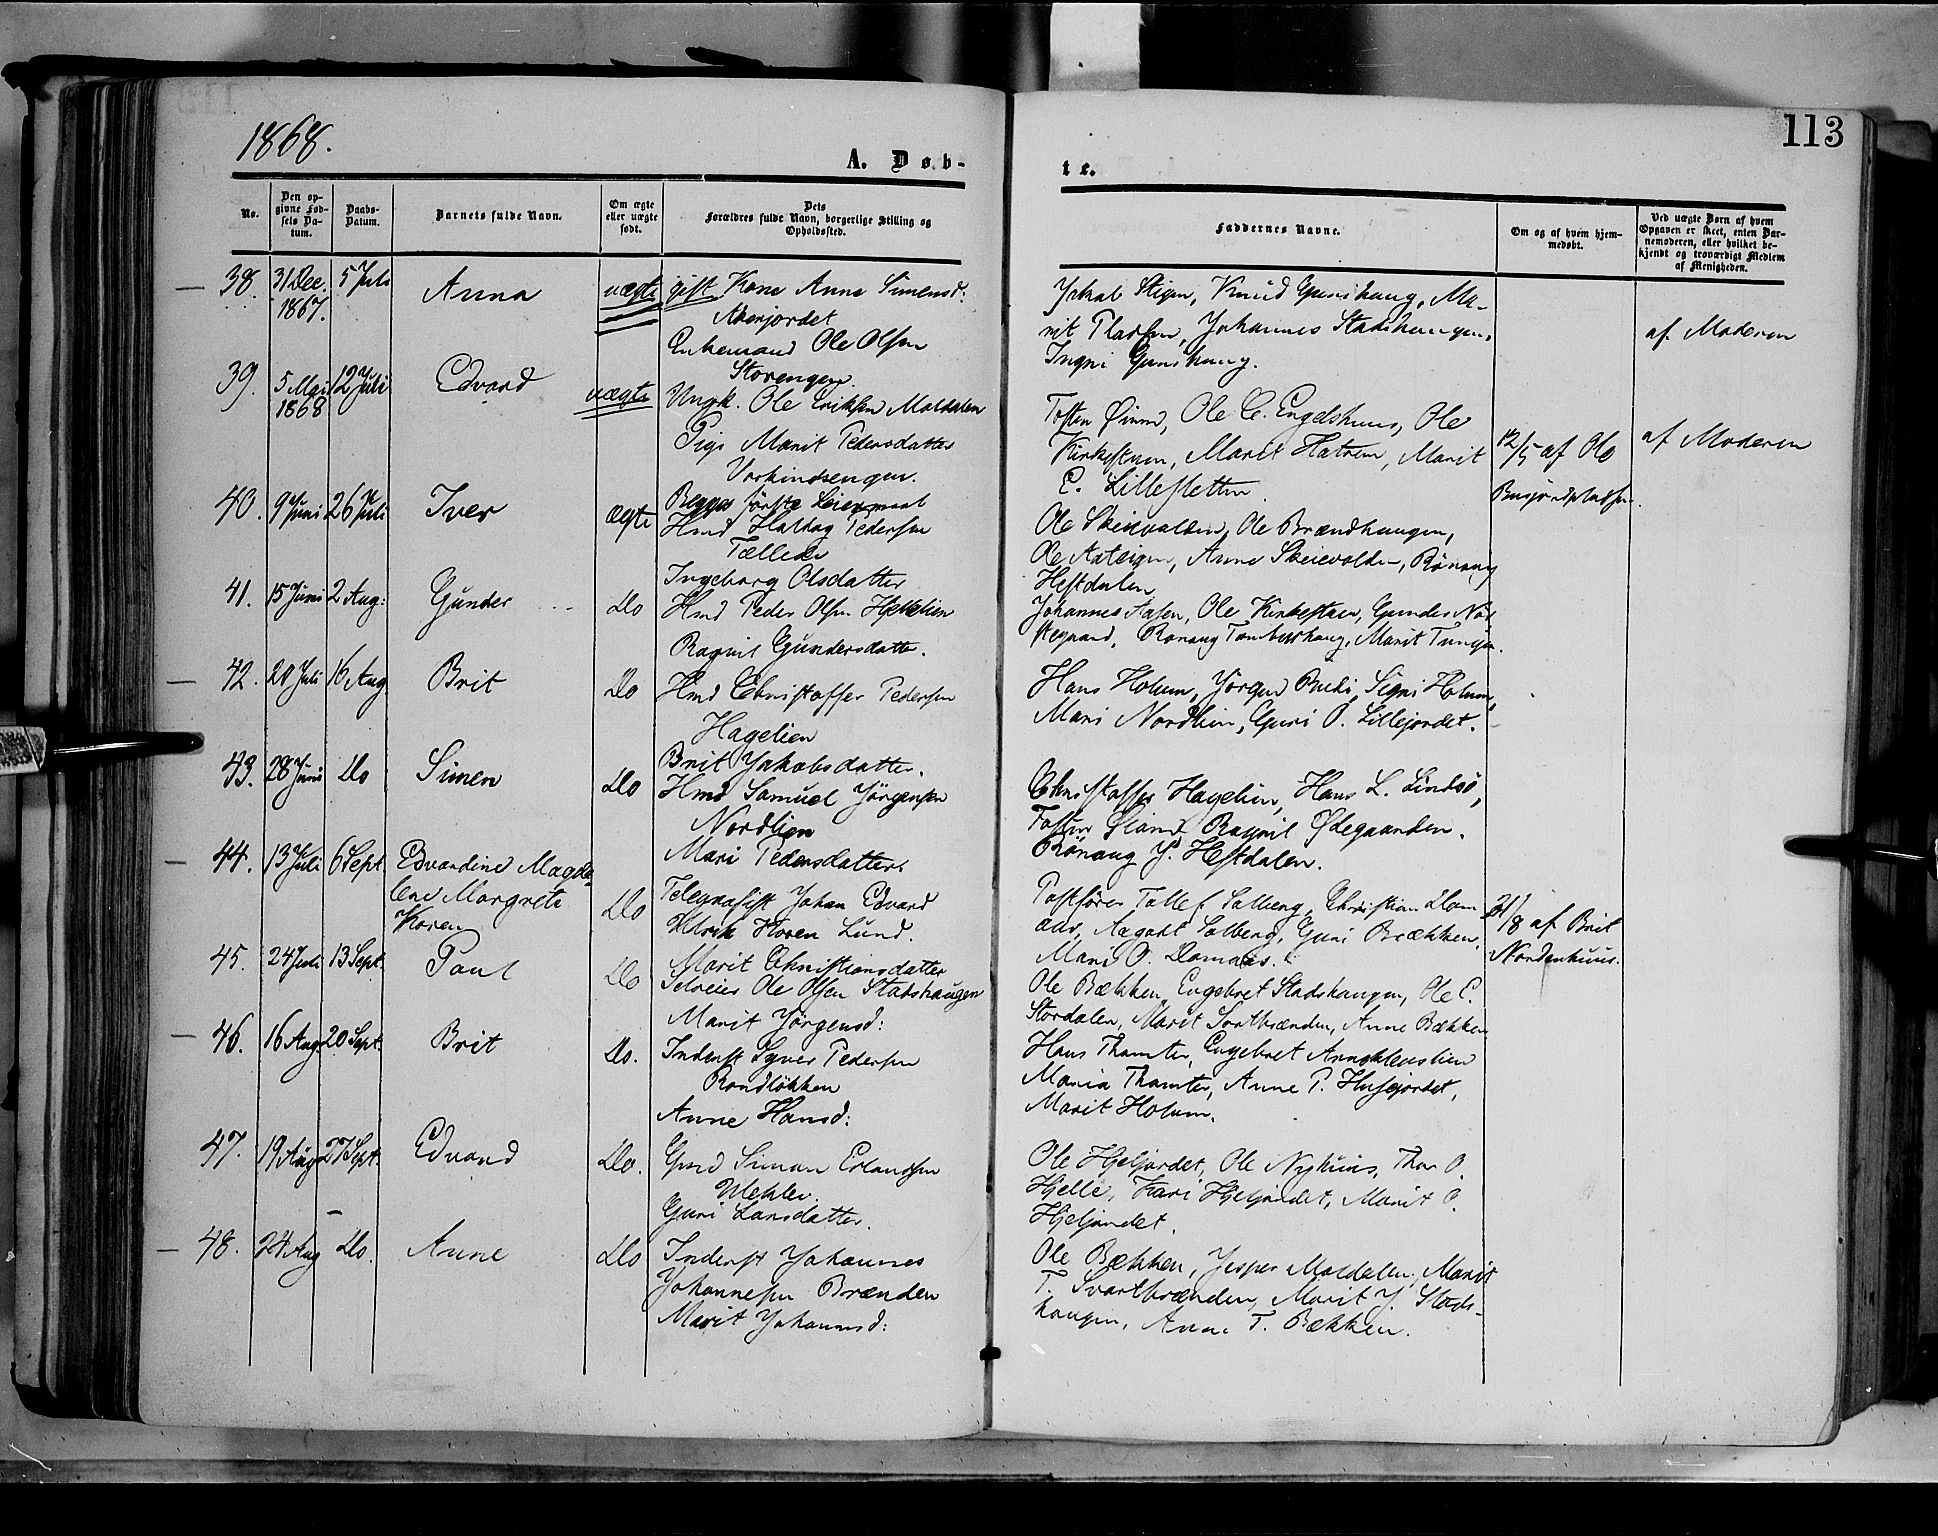 1868.
113
A. Døb-
te.
No.
Den op-
givne Fød-
sels Da-
tum.
Daabs-
Datum.
Barnets fulde Navn.
Om ægte
eller uægte
født.
Dets
Forældres fulde Navn, borgerlige Stilling og
Opholdssted.
Faddernes Navne.
Om og af hvem hjem-
medøbt.
Ved uægte Børn af hvem
Opgaven er skeet, enten Bar-
nemoderen, eller hvilket be-
kjendt og troværdigt Medlem
af Menigheden.
38. 31 Dec. 5 Juli Anna uægte gift Kone Anne Simensd:
1867.
Enkemand Ole Olsen
Storengen.
Jakob Stigen, Knud Gunshaug, Ma-
rit Pladsen, Johannes Stadshaugen,
Gunshaug.
af Moderen
39. 5 Mai 12 Juli Edvard uægte Ungk. Ole Eriksen Moldalen
1868
Pige Marit Pedersdatter
Begges første Leiermaal
Ole E. Engelshuus, Ole
Kirkestuen, Marit Hatrem, Marit
E. Lillesletten
12/5 af Ole
af Moderen
40. 9 Juni 26 Juli Iver ægte Hmd Pedersen
Ingeborg Olsdatter
Ole Skeievolden, Ole Brændhaugen,
Ole Anne Skeievolden, Rønaug
Hestdalen
41. 15 Juni 2 Aug: Gunder Do Hmd Peder Olsen
Ragnil Gundersdatter.
Johannes Aasen, Ole Kirkestuen, Gunder Nor
stegaard, Rønaug Marit
42. 20 Juli 16 Aug Brit Do Hmd Christoffer Pedersen
Hagelien
Brit Jakobsdatter.
Hans Holum, Jørgen Signi Holum,
Mari Nordlien, Guri O. Lillejordet.
43. 28 Juni Do Simen Do Hmd Samuel Jørgensen
Nordlien
Mari Pedersdatter.
Christoffer Hagelien, Hans L. Lindsø,
Ragnil Ødegaarden.
Rønaug J. Hestdalen.
44. 13 Juli 6 Sept. Edvardine Magda-
lene Margrete
Horen
Do Telegrafist Johan Edvard
Ulrik Horen Lund.
Marit Christiansdatter
Solberg, Christian Dom
aas, Aagodt Solberg, Guri Bækken.
Mari O. Domaas.
21/8 af Brit
Nordenhuus.
45. 24 Juli 13 Sept. Paul Do Selveier Ole Olsen Stadshaugen
Marit Jørgensd:
Ole Bækken, Engebret Stadshaugen, Ole E.
Stordalen, Marit Svartbrænden, Anne Bækken
46. 16 Aug. 20 Sept. Brit Do. Inderst Syver Pedersen
Randløkken
Anne Hansd:
Hans Thamter, Engebret
Maria Thamter, Anne P. Husejordet,
Marit Holum.
47. 19 Aug 27 Sept. Edvard Do. Gmd Simen Erlandsen
Guri Larsdatter.
Ole Hjeljordet, Ole Nyhuus, Thor O.
Hjelle, Kari Hjeljordet, Marit O.
Hjeljordet.
48. 24 Aug Do. Anne Do Inderst Johannes
Johannesen Brænden
Marit Johannesd:
Ole Bækken, Jesper Moldalen, Marit
T. Svartbrænden, Marit J. Stads-
haugen, Anne T. Bækken.